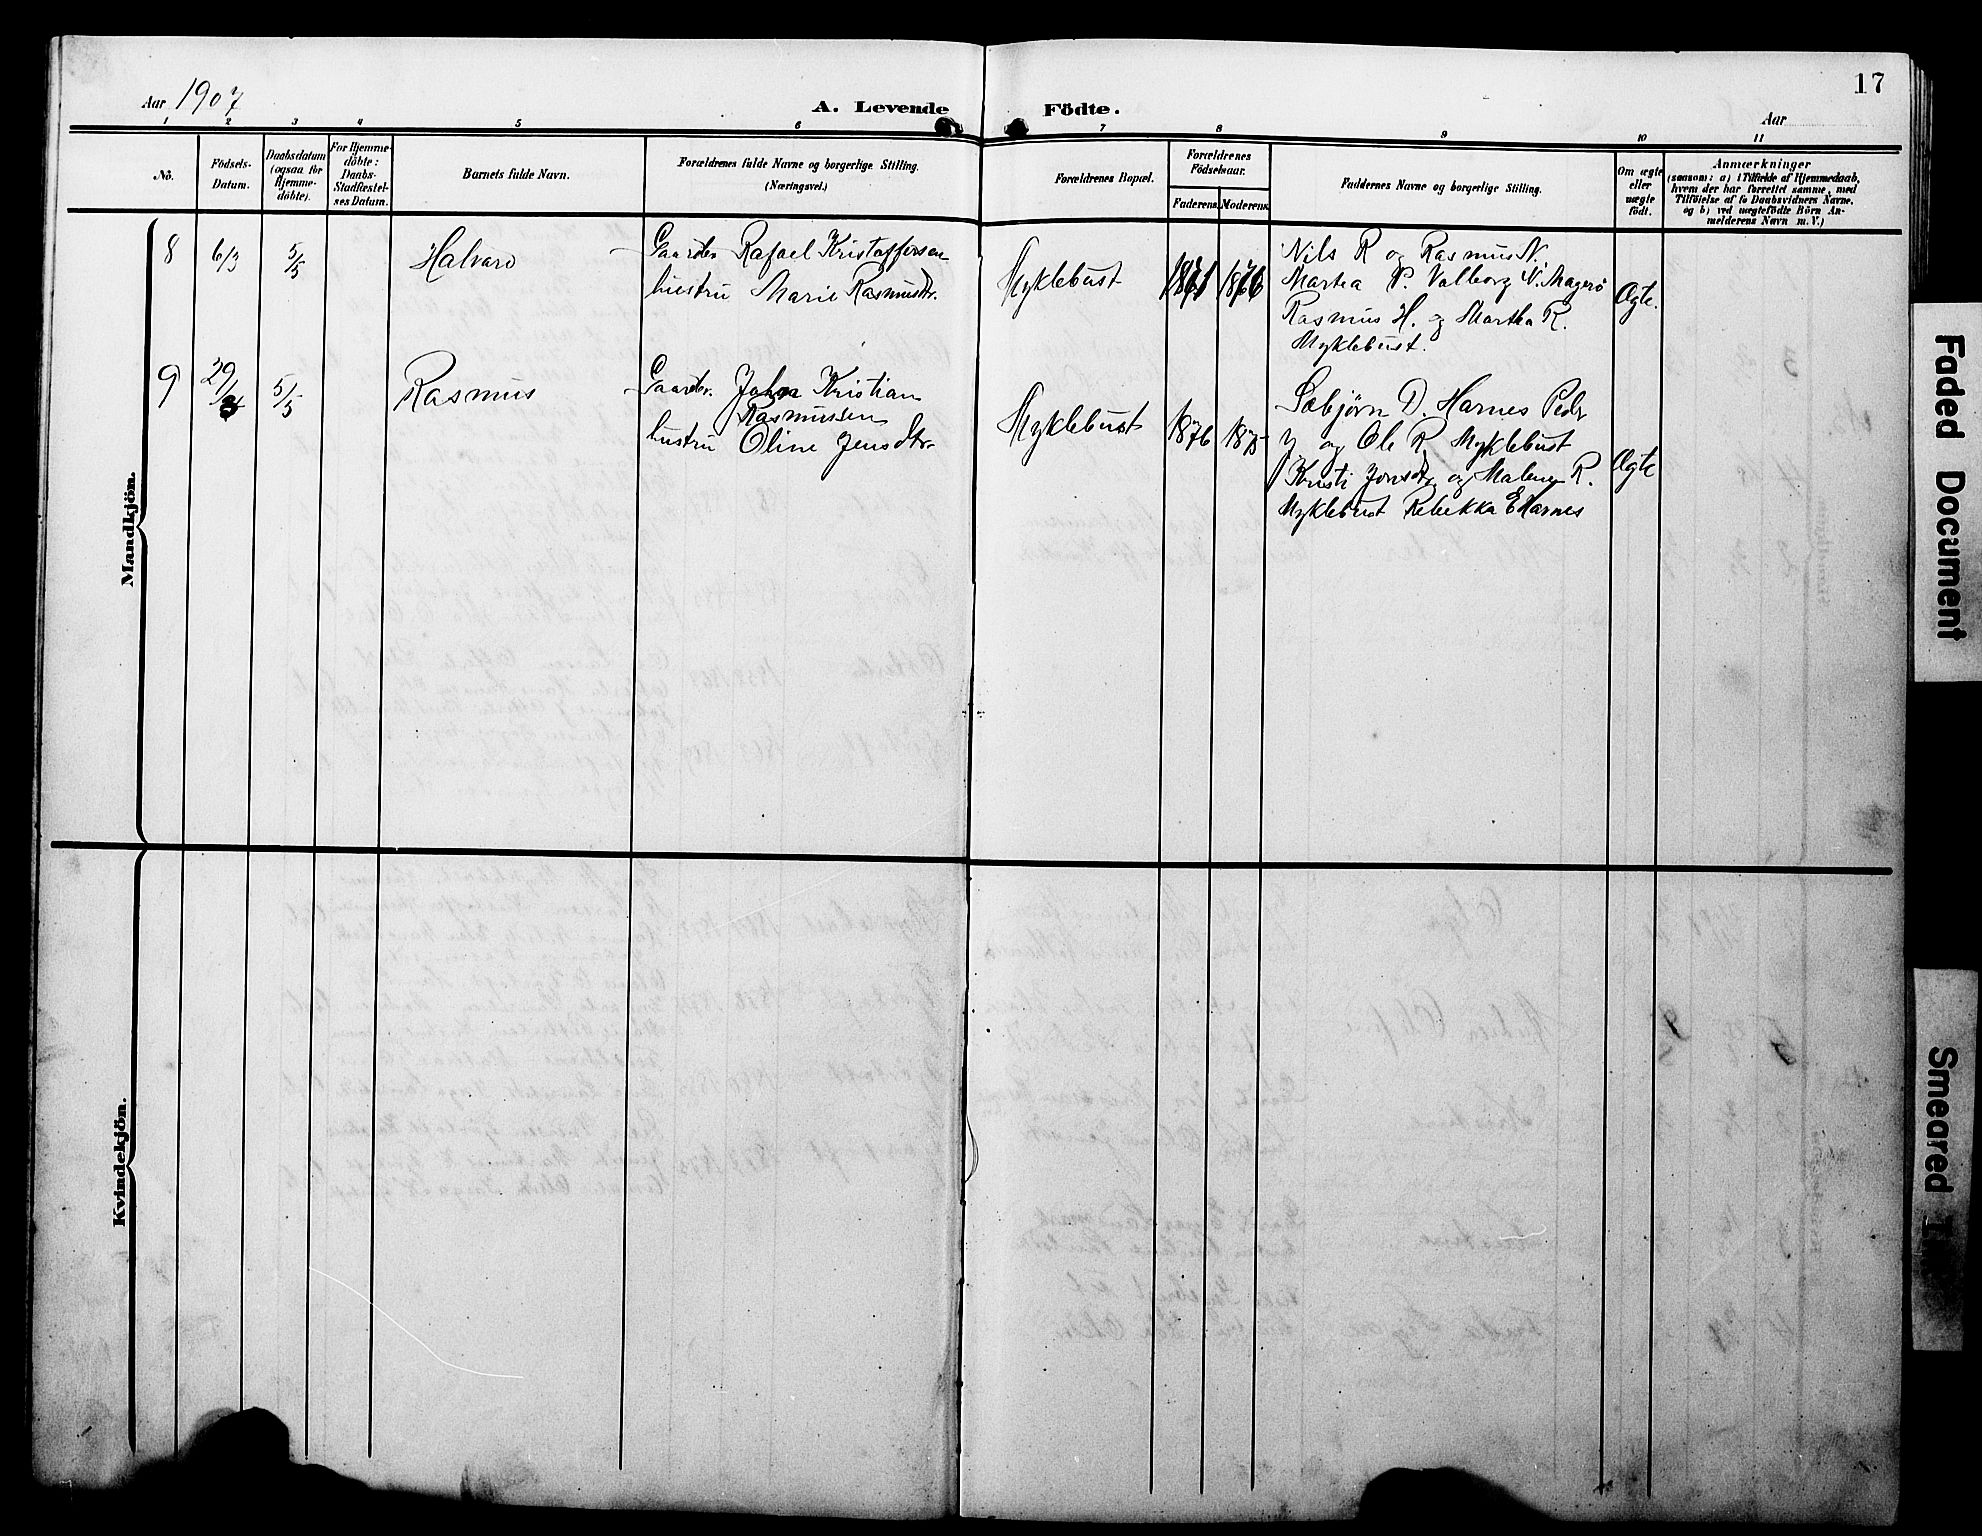 17
Aar 1907
A. Levende Födte.
Aar
1 2 3 4 5 6 7 8 9 10 11
Nô.
Födsels-
Datum.
Daabsdatum
(ogsaa for
Hjemme-
döbte).
For Hjemme-
döbte:
Daabs-
Stadfæstel-
ses Datum.
Barnets fulde Navn.
Forældrenes fulde Navne og borgerlige Stilling.
(Næringsvei.)
Forældrenes Bopæl.
Forældrenes
Födselsaar.
Faderens. Moderens.
Faddernes Navne og borgerlige Stilling.
Om ægte
eller
uægte
födt.
Anmærkninger
(saasom: a) i Tilfælde af Hjemmedaab,
hvem der har forrettet samme, med
Tilföielse af to Daabsvidners Navne,
og b) ved uægtefödte Börn An-
melderens Navn m. V.)
Mandkjön.
8 6/3 5/5 Halvard
Gaardbr Rafael Kristoffersen
hustru Marie Rasmusdtr.
Myklebust
Nils R og Rasmus N.
Martea P. Valborg N. Magerö
Rasmus H. og Martha R.
Myklebust.
Ægte.
9 29/3 5/5 Rasmus
Gaardbr. Johan Kristian
Rasmussen
hustru Oline Jensdtr.
Myklebust 1876 1875
Sæbjørn D. Harnes Peder
J og Ole R. Myklebust
Kristi Jonsdtr og Malene R.
Myklebust Rebekka E Harnes
Ægte
Kvindekjön.
Faded Document
Smeared